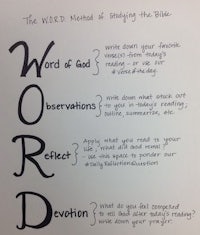 The W.O.R.D. Method of Studying the Bible
Word of God } Write down your favorite
verse(s) from today's
reading - or use our
# verse of the day.
Observations } Write down what stuck out
to you in today's reading,
outline, summarize, etc.
Reflect } Apply what you read to your
life, what did God reveal?
- use this space to ponder our
#daily
Devotion } What do you feel compelled
to tell God after today's reading?
Write down your prayer.